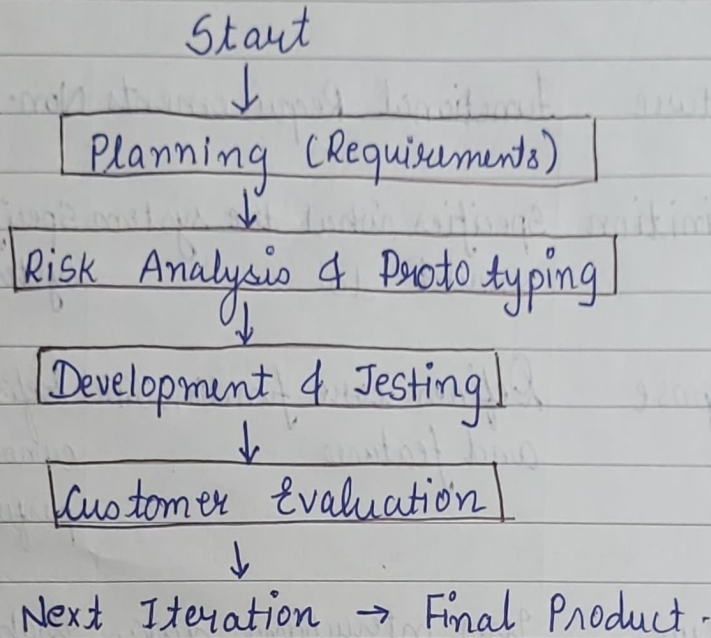 Start
↓
Planning (Requirements)
↓
Risk Analysis & Proto typing
↓
Development & Testing
↓
Customer Evaluation
↓
Next Iteration → Final Product.